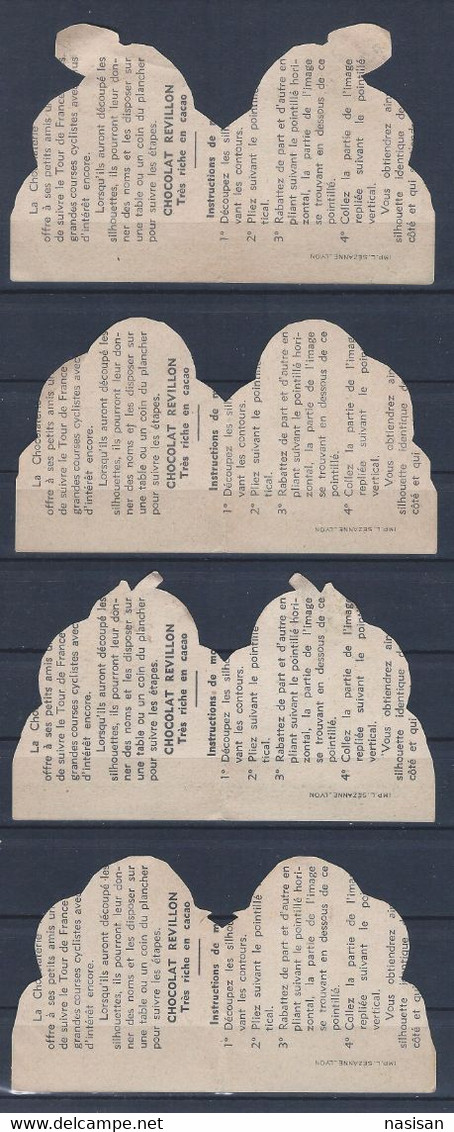 La Chocolaterie
offre à ses petits amis u
de suivre le Tour de France
grandes courses cyclistes avec
d'intérêt encore.
Lorsqu'ils auront découpé les
silhouettes, ils pourront leur don-
ner des noms et les disposer sur
une table ou un coin du plancher
pour suivre les étapes.
CHOCOLAT REVILLON
Très riche en cacao
Instructions de
1° Découpez les silh
vant les contours.
2° Pliez suivant le pointillé
tical.
3° Rabattez de part et d'autre en
pliant suivant le pointillé hori-
zontal, la partie de l'image
se trouvant en dessous de ce
pointillé.
4° Collez la partie de l'image
repliée suivant le pointillé
vertical.
Vous obtiendrez ain
silhouette identique de
côté et qui
IMP. L. SEZANNE_LYON
La Chocolaterie
offre à ses petits amis un
de suivre le Tour de France
grandes courses cyclistes avec
d'intérêt encore.
Lorsqu'ils auront découpé les
silhouettes, ils pourront leur don-
ner des noms et les disposer sur
une table ou un coin du plancher
pour suivre les étapes.
CHOCOLAT REVILLON
Très riche en cacao
Instructions de mo
1° Découpez les silh
vant les contours.
2° Pliez suivant le pointill
tical.
3° Rabattez de part et d'autre en
pliant suivant le pointillé hori-
zontal, la partie de l'image
se trouvant en dessous de ce
pointillé.
4° Collez la partie de l'imag
repliée suivant le po
vertical.
Vous obtiendrez ain
silhouette identique d
côté et qui
IMP. L. SEZANNE_LYON
La Chocolaterie
offre à ses petits amis un
de suivre le Tour de France
grandes courses cyclistes avec
d'intérêt encore.
Lorsqu'ils auront découpé les
silhouettes, ils pourront leur don-
ner des noms et les disposer sur
une table ou un coin du plancher
pour suivre les étapes.
CHOCOLAT REVILLON
Très riche en cacao
Instructions de mo
1° Découpez les silho
vant les contours.
2° Pliez suivant le pointillé
tical.
3° Rabattez de part et d'autre en
pliant suivant le pointillé hori-
zontal, la partie de l'image
se trouvant en dessous de ce
pointillé.
4° Collez la partie de l'image
repliée suivant le poi
vertical.
Vous obtiendrez ain
silhouette identique d
côté et qui
IMP. L. SEZANNE_LYON
La Chocolaterie
offre à ses petits amis un
de suivre le Tour de France
grandes courses cyclistes avec
d'intérêt encore.
Lorsqu'ils auront découpé les
silhouettes, ils pourront leur don-
ner des noms et les disposer sur
une table ou un coin du plancher
pour suivre les étapes.
CHOCOLAT REVILLON
Très riche en cacao
Instructions de m
1° Découpez les silhou
vant les contours.
2° Pliez suivant le pointillé
tical.
3° Rabattez de part et d'autre en
pliant suivant le pointillé hori-
zontal, la partie de l'image
se trouvant en dessous de ce
pointillé.
4° Collez la partie de l'image
repliée suivant le po
vertical.
Vous obtiendrez ain
silhouette identique
côté et qui
IMP. L. SEZANNE_LYON
www.delcampe.net
nasisan